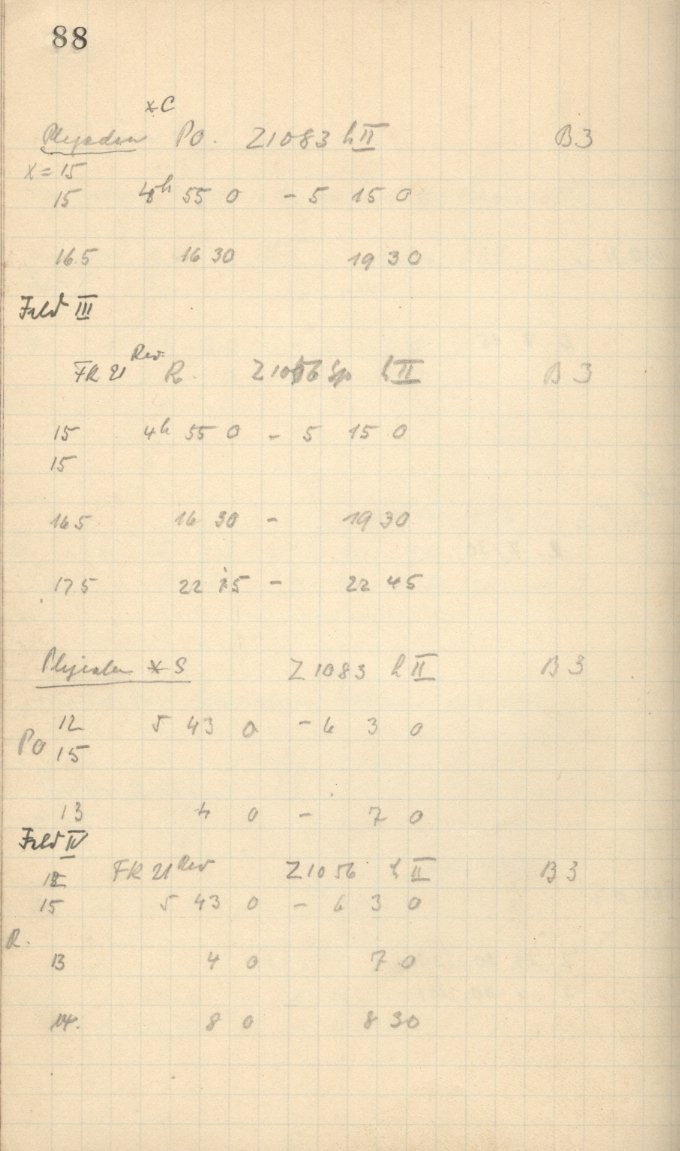 88
*C
Plejaden Po. Z1083 h II B3
x = 15
15 4h 55 0 - 5 15 0
16.5 16 30 19 30
Feld III
FR 21 Rev. R. Z1056 Sp h II B 3
15 4h 55 0 - 5 15 0
15
16.5 16 30 - 19 30
17.5 22 15 - 22 45
Plejaden * S Z 1083 h II B 3
12 5 43 0 - 6 3 0
Po 15
13 4 0 - 7 0
Feld IV
12 FR 21 Rev Z1056 h II B 3
15 5 43 0 - 6 3 0
R.
13 4 0 7 0
14. 8 0 8 30